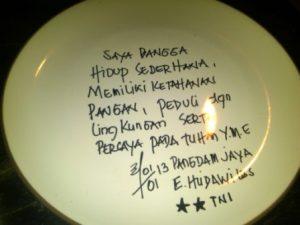 SAYA BANGGA
HIDUP SEDERHANA,
MEMILIKI KETAHANAN
PANGAN, PEDULI dgn
LINGKUNGAN SERTA
PERCAYA PADA TUHAN Y.M.E
PANGDAM JAYA
01 E. HUDAWI
★★ TNI